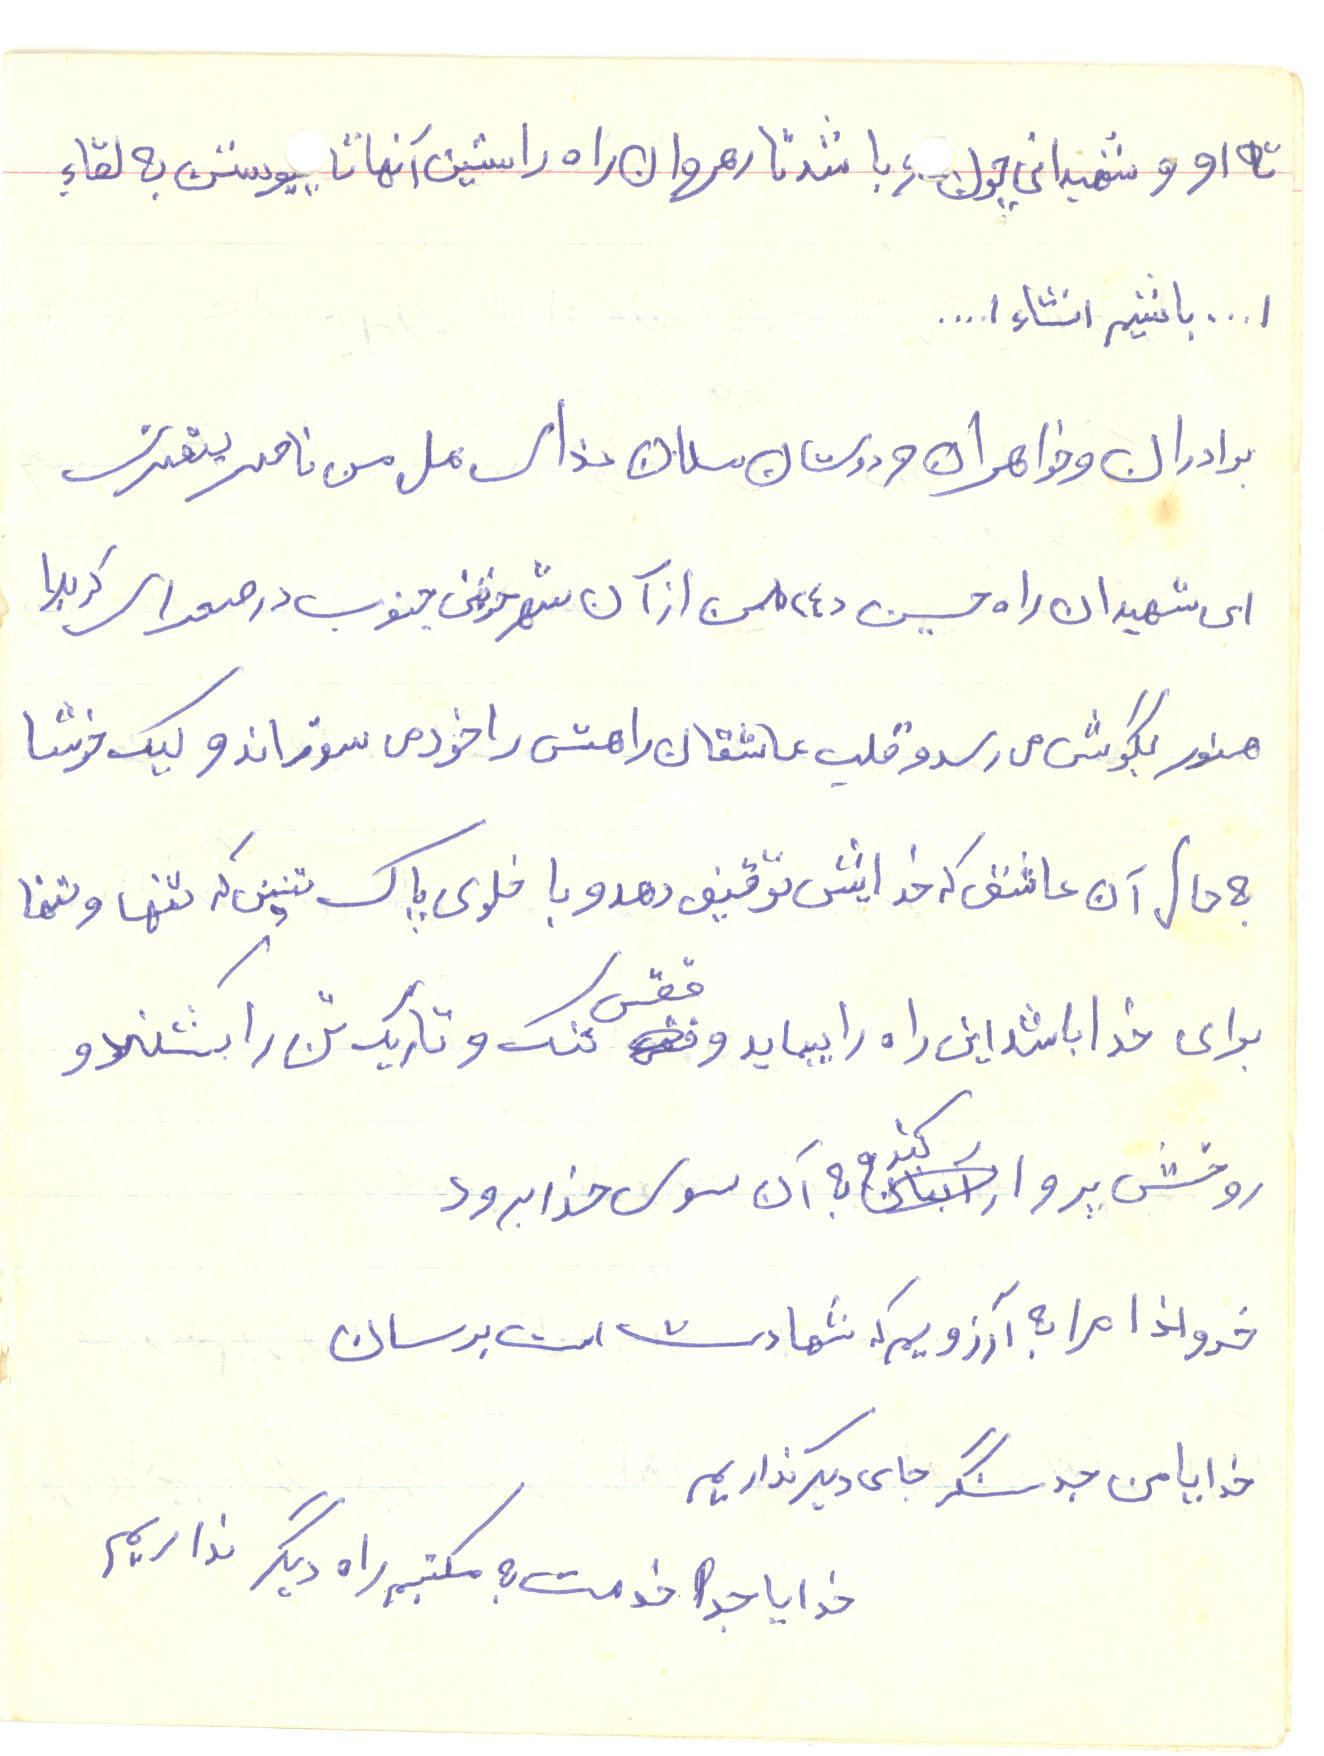 تا او و شهیدانی چون او باشد تا رهروان راه راستین آنها تا پیوستن به لقاء
ا... باشیم انشاء ا....
برادران و خواهران و دوستان سلمان ندای هل من ناصر ینصرنی
ای شهیدان راه حسین «ع» من از آن شهر خونین جنوب در صحرای کربلا
هنوز بگوش می رسد و قلب عاشقان راهش را خود می سوزاند و لیک خوشا
به حال آن عاشق که خدایش توفیق دهد و با خلوص پاک تنها و تنها
برای خدا باشد این راه را بپیماید و قفس تنگ و تاریک تن را بشکند و
روحش پرواز کند و به آن سوی خدا برود
خداوندا مرا به آرزویم که شهادت است برسان
خدایا من جز سنگر جای دیگر نداریم
خدایا جز خدمت به مکتبم راه دیگر نداریم